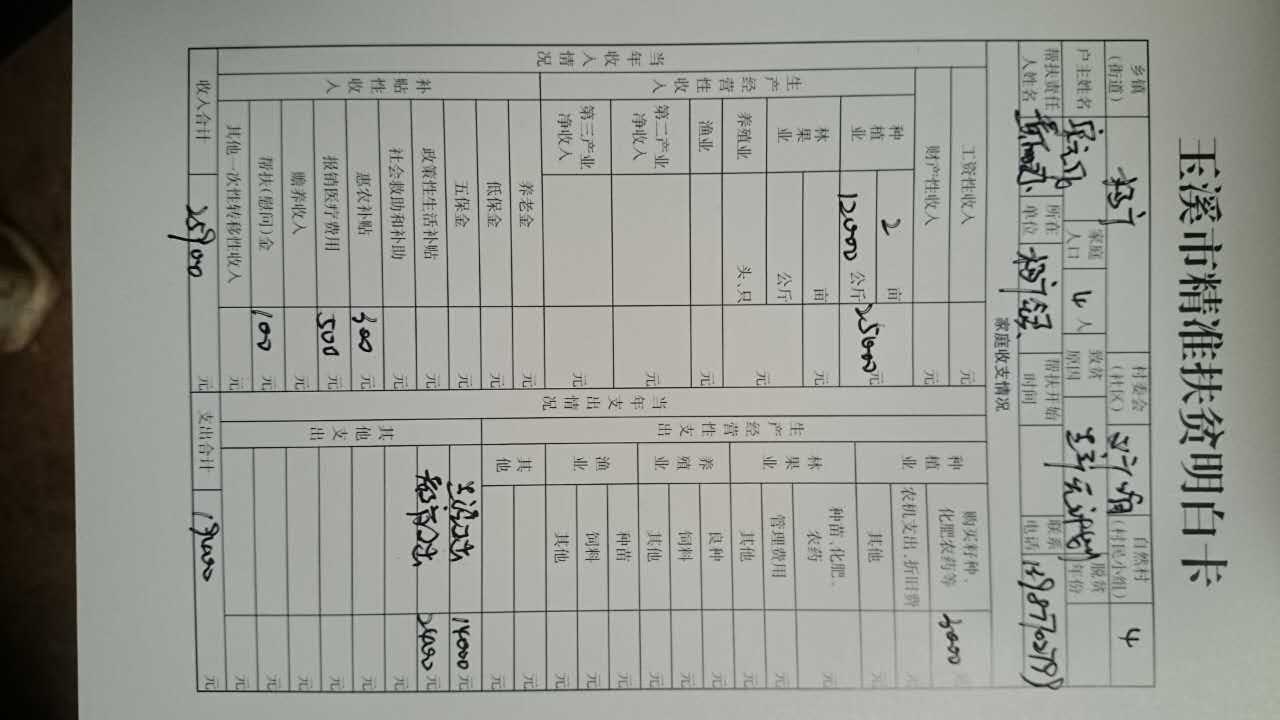 玉溪市精准扶贫明白卡
乡镇(街道) 村委会(社区) 自然村(村民小组) 4
户主姓名 家庭人口 4 人 致贫原因 脱贫年份
帮扶责任人姓名 所在单位 帮扶开始时间 联系电话
家庭收支情况
当年收入情况
工资性收入 元
财产性收入 元
生产经营性收入
种植业 2 亩
12000 公斤 25000 元
林果业 亩
公斤 元
养殖业 头、只 元
渔业 元
第二产业净收入 元
第三产业净收入 元
补贴性收入
养老金 元
低保金 元
五保金 元
政策性生活补贴 元
社会救助和补助 元
惠农补贴 300 元
报销医疗费用 500 元
赡养收入 元
帮扶(慰问)金 100 元
其他一次性转移性收入 元
收入合计 25900 元
当年支出情况
生产经营性支出
种植业
购买籽种、化肥农药等 3000 元
农机支出、折旧费 元
其他 元
林果业
种苗、化肥、农药 元
管理费用 元
其他 元
养殖业
良种 元
饲料 元
其他 元
渔业
种苗 元
饲料 元
其他 元
其他 元
元
其他支出
生活支出 14000 元
教育支出 元
元
元
元
元
元
元
支出合计 元